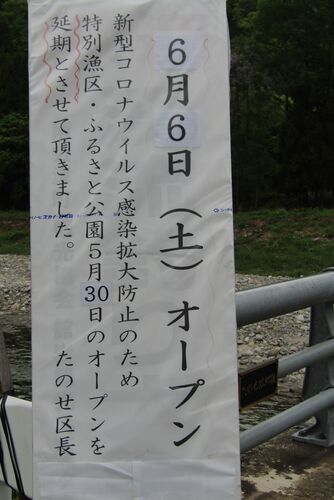 6月6日(土)オープン
新型コロナウイルス感染拡大防止のため
特別漁区・ふるさと公園5月30日のオープンを
延期とさせて頂きました。 たのせ区長